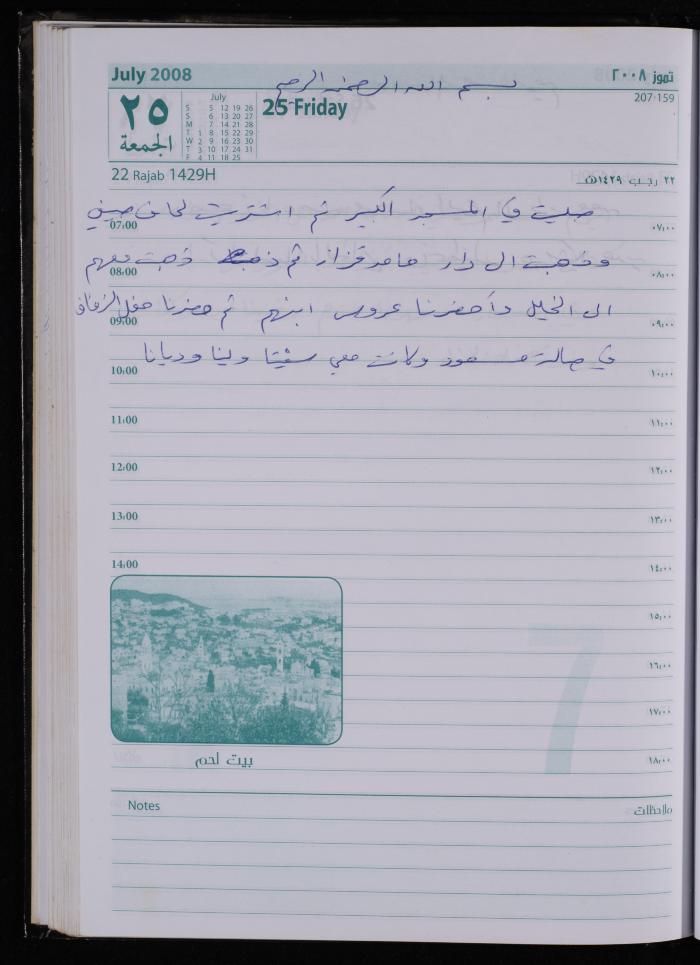 July 2008
تموز ٢٠٠٨
بسم الله الرحمن الرحيم
٢٥
الجمعة
July
S 5 12 19 26
S 6 13 20 27
M 7 14 21 28
T 1 8 15 22 29
W 2 9 16 23 30
T 3 10 17 24 31
F 4 11 18 25
25 Friday
207-159
22 Rajab 1429H
٢٢ رجب ١٤٢٩هـ
صليت في المسجد الكبير ثم اشتريت لحاف صيفي
07:00 ٠٧:٠٠
وذهبت ال دار حامد قزاز ثم ذهبت معهم
08:00 ٠٨:٠٠
الى الخليل وأحضرنا عروس ابنهم ثم حضرنا حفل الزفاف
09:00 ٠٩:٠٠
في صالة مسعود وكانت معي ولينا وديانا
10:00 ١٠:٠٠
11:00 ١١:٠٠
12:00 ١٢:٠٠
13:00 ١٣:٠٠
14:00 ١٤:٠٠
١٥:٠٠
7
١٦:٠٠
١٧:٠٠
١٨:٠٠
بيت لحم
Notes
ملاحظات